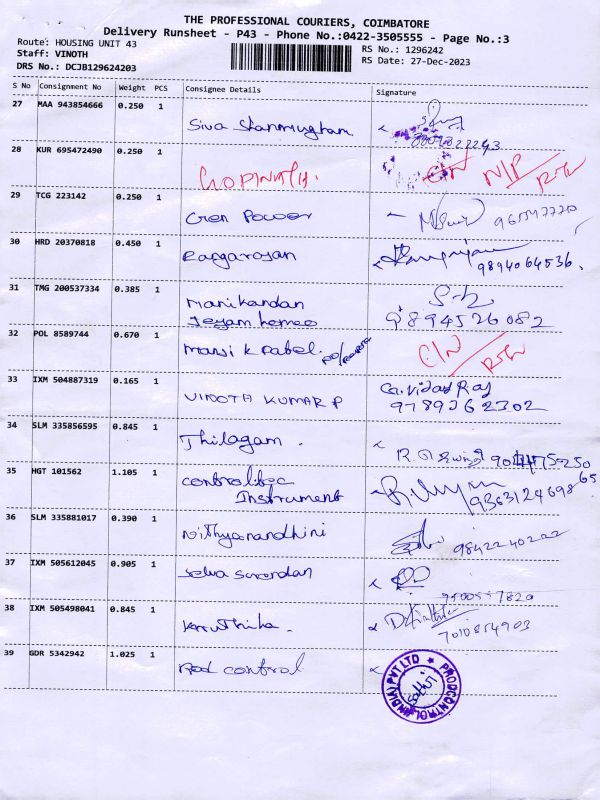 THE PROFESSIONAL COURIERS, COIMBATORE
Delivery Runsheet - P43 - Phone No.:0422-3505555 - Page No.:3
Route: HOUSING UNIT 43
RS No.: 1296242
Staff: VINOTH
RS Date: 27-Dec-2023
DRS No.: DCJB129624203
S No Consignment No Weight PCS Consignee Details Signature
27 MAA 943854666 0.250 1
Siva Shanmugham
28 KUR 695472490 0.250 1
GOPINATH. C/N N/P RTN
29 TCG 223142 0.250 1
Gren Power
30 HRD 20370818 0.450 1
Rangarajan
9894064536.
31 TMG 200537334 0.385 1
Manikandan
Jeyam homeo 9894526082
32 POL 8589744 0.670 1
Mansi k Patel. C/N RTN
33 IXM 504887319 0.165 1
G.Viday Raj
VINOTH KUMAR P 9789262302
34 SLM 335856595 0.845 1
Thilagam.
35 HGT 101562 1.105 1
Controltec
Instrument
36 SLM 335881017 0.390 1
Nithyanandhini 9842240222
37 IXM 505612045 0.905 1
Selva Surendan
38 IXM 505498041 0.845 1
Kruthika.
7010854903
39 GDR 5342942 1.025 1
Prod control
PRODCONTROL (INDIA) PVT LTD